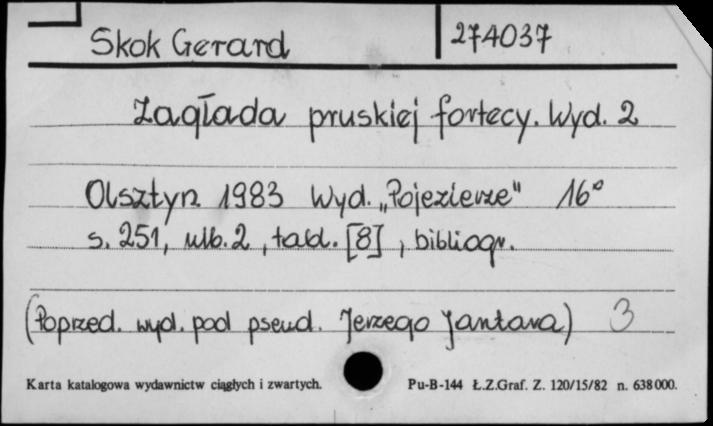 Skok Gerard 274037
Zagłada pruskiej fortecy. Wyd. 2
Olsztyn 1983 Wyd. „Pojezierze" 16°
s. 251, nlb. 2, tabl. [8], bibliogr.
(Poprzed. wyd. pod pseud. Jerzego Jantara) 3
Karta katalogowa wydawnictw ciągłych i zwartych. Pu-B-144 Ł.Z.Graf. Z. 120/15/82 n. 638000.